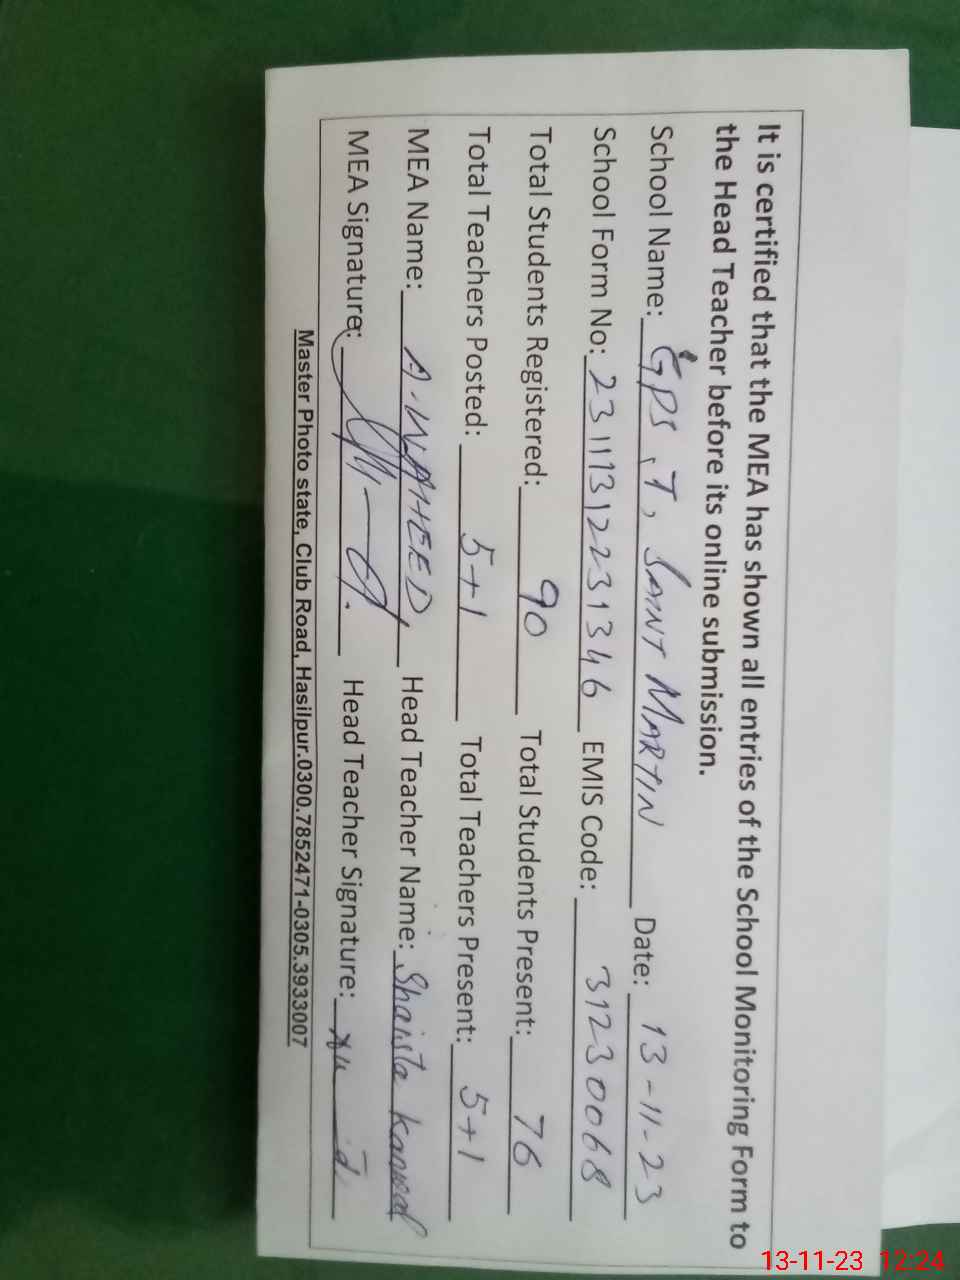 It is certified that the MEA has shown all entries of the School Monitoring Form to
the Head Teacher before its online submission.
School Name: GPS, T, SAINT MARTIN Date: 13-11-23
School Form No: 23111312231346 EMIS Code: 31230068
Total Students Registered: 90 Total Students Present: 76
Total Teachers Posted: 5+1 Total Teachers Present: 5+1
MEA Name: A.WAHEED Head Teacher Name: Shaista Kanwal
MEA Signature: Head Teacher Signature:
Master Photo state, Club Road, Hasilpur.0300.7852471-0305.3933007
13-11-23 12:24